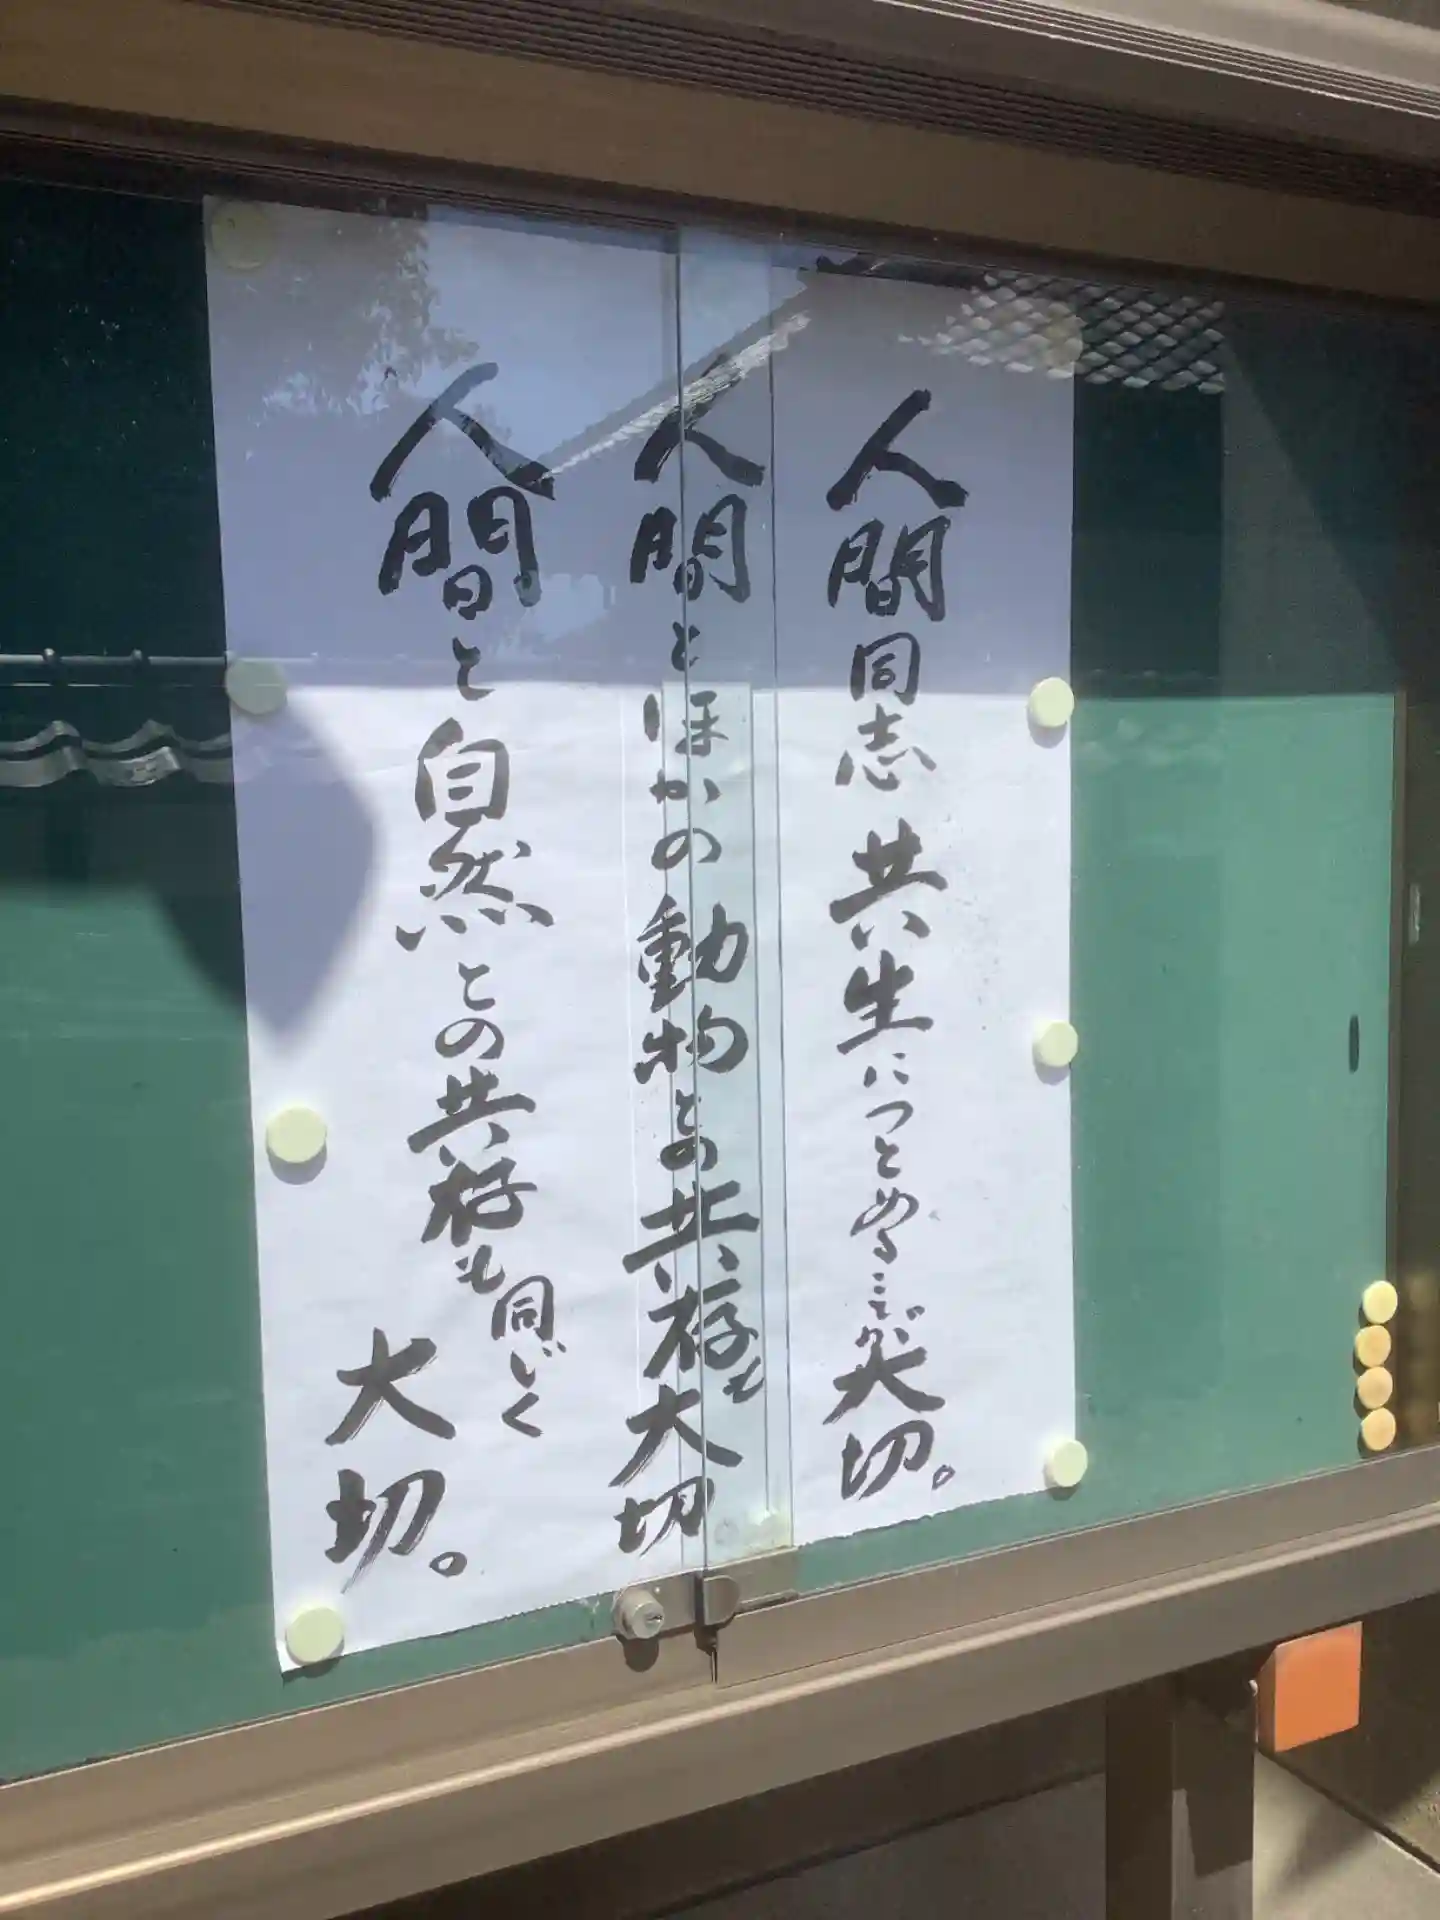 人間同志 共生につとめることが大切。
人間とほかの動物との共存も大切
人間と自然との共存も同じく大切。